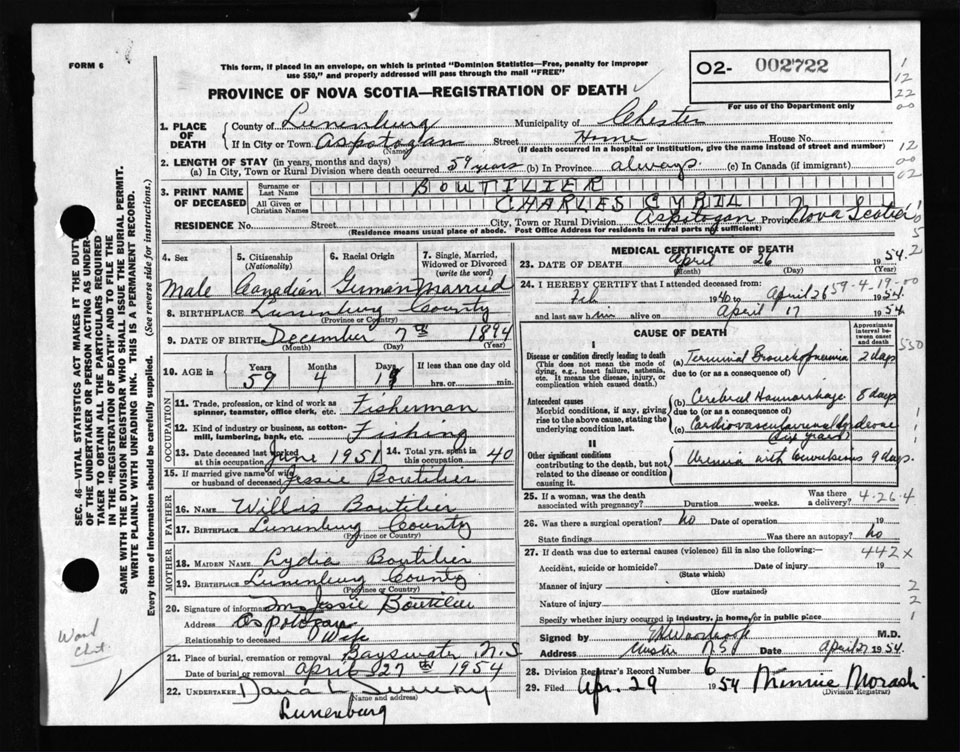 FORM 6
This form, if placed in an envelope, on which is printed "Dominion Statistics—Free, penalty for improper
use $50," and properly addressed will pass through the mail "FREE"
O2- 002722
For use of the Department only
PROVINCE OF NOVA SCOTIA—REGISTRATION OF DEATH
1. PLACE OF DEATH
County of Lunenburg Municipality of Chester
If in City or Town Aspotogan Street Home House No.
(Name) (If death occurred in a hospital or institution, give the name instead of street and number)
2. LENGTH OF STAY (in years, months and days)
(a) In City, Town or Rural Division where death occurred 59 years (b) In Province always. (c) In Canada (if immigrant)
3. PRINT NAME OF DECEASED
Surname or Last Name BOUTILIER
All Given or Christian Names CHARLES CYRIL
RESIDENCE No. Street City, Town or Rural Division Aspotogan Province Nova Scotia
(Residence means usual place of abode. Post Office Address for residents in rural parts not sufficient)
4. Sex Male
5. Citizenship (Nationality) Canadian
6. Racial Origin German
7. Single, Married, Widowed or Divorced (write the word) Married
8. BIRTHPLACE Lunenburg County
(Province or Country)
9. DATE OF BIRTH December 7th 1894
(Month) (Day) (Year)
10. AGE in Years 59 Months 4 Days If less than one day old hrs. or min.
OCCUPATION
11. Trade, profession, or kind of work as spinner, teamster, office clerk, etc. Fisherman
12. Kind of industry or business, as cotton-mill, lumbering, bank, etc. Fishing
13. Date deceased last worked at this occupation June 1951
14. Total yrs. spent in this occupation 40
15. If married give name of wife or husband of deceased Jessie Boutilier
FATHER
16. NAME Willis Boutilier
17. BIRTHPLACE Lunenburg County
(Province or Country)
MOTHER
18. MAIDEN NAME Lydia Boutilier
19. BIRTHPLACE Lunenburg County
(Province or Country)
20. Signature of informant Mrs Jessie Boutilier
Address Aspotogan
Relationship to deceased Wife
21. Place of burial, cremation or removal Bayswater N.S
Date of burial or removal April 27th 1954
22. UNDERTAKER Dana L. Sweeny
(Name and address)
Lunenburg
MEDICAL CERTIFICATE OF DEATH
23. DATE OF DEATH April 26 1954.
(Month) (Day) (Year)
24. I HEREBY CERTIFY that I attended deceased from:
Feb 1940 to April 26 1954.
and last saw him alive on April 17 1954
59-4-19-00
CAUSE OF DEATH
Approximate interval between onset and death
I
Disease or condition directly leading to death
(This does not mean the mode of dying, e.g., heart failure, asthenia, etc. It means the disease, injury, or complication which caused death.)
(a) Terminal Bronchopneumonia 2 days
due to (or as a consequence of)
Antecedent causes
Morbid conditions, if any, giving rise to the above cause, stating the underlying condition last.
(b) Cerebral Haemorrhage 8 days
due to (or as a consequence of)
(c) Cardiovascular renal disease
(six years)
II
Other significant conditions
contributing to the death, but not related to the disease or condition causing it.
Uremia with 9 days.
25. If a woman, was the death associated with pregnancy? Duration weeks. Was there a delivery? 4-26-4
26. Was there a surgical operation? No Date of operation 19
State findings Was there an autopsy? No
27. If death was due to external causes (violence) fill in also the following:— 442X
Accident, suicide or homicide? Date of injury 19
(State which)
Manner of injury
(How sustained)
Nature of injury
Specify whether injury occurred in industry, in home, or in public place
Signed by M.D.
Address N.S. Date April 27 1954.
28. Division Registrar's Record Number 6
29. Filed Apr. 29 1954 Minnie Morash
(Division Registrar)
SEC. 46—VITAL STATISTICS ACT MAKES IT THE DUTY
OF THE UNDERTAKER OR PERSON ACTING AS UNDER-
TAKER TO OBTAIN ALL THE PARTICULARS REQUIRED
IN THE "REGISTRATION OF DEATH" AND TO FILE THE
SAME WITH THE DIVISION REGISTRAR WHO SHALL ISSUE THE BURIAL PERMIT.
WRITE PLAINLY WITH UNFADING INK. THIS IS A PERMANENT RECORD.
Every item of information should be carefully supplied. (See reverse side for instructions.)